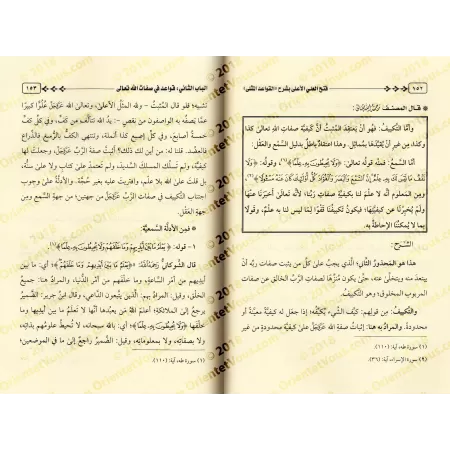 ١٥٢
فتح العلي الأعلى بشرح «القواعد المثلى»
قال المصنف
وأمَّا التَّكييفُ: فهو أنْ يَعتقِدَ المُثبِتُ أنَّ كيفيَّةَ صفاتِ اللهِ تعالى كذا
وكذا، مِن غيرِ أنْ يُقيِّدَها بمُماثِلٍ. وهذا اعتقادٌ باطلٌ بدليلِ السَّمعِ والعَقْلِ.
أمَّا السَّمْعُ: فمنه قولُه تعالى: ﴿وَلَا يُحِيطُونَ بِهِ عِلْمًا﴾(١)، وقولُه: ﴿وَلَا
تَقْفُ مَا لَيْسَ لَكَ بِهِ عِلْمٌ إِنَّ السَّمْعَ وَالْبَصَرَ وَالْفُؤَادَ كُلُّ أُولَئِكَ كَانَ عَنْهُ مَسْئُولًا﴾(٢).
ومِن المعلومِ أنَّه لا عِلمَ لنا بكيفيَّةِ صفاتِ ربِّنا؛ لأنَّه تعالى أخبَرَنا عنها
ولَمْ يُخبِرْنا عن كيفيَّتِها؛ فيكونُ تكييفُنا قَفْوًا لِمَا ليس لنا به عِلْمٌ، وقولًا
بما لا يُمكِنُنا الإحاطةُ به.
الشَّرحُ:
هذا هو المحذورُ الثَّاني؛ الَّذي يجبُ على كلِّ مَن يُثبِتُ صفاتِ ربِّه أنْ
يبتعدَ منه ويتخلَّى عنه، حتَّى يكونَ مُنزِّهًا لصفاتِ الرَّبِّ الخالقِ عن صفاتِ
المربوبِ المخلوقِ، وهو التَّكييفُ.
والتَّكييفُ: مِن قولِهم: كيَّفَ الشَّيءَ يُكيِّفُه؛ إذا جعل له كيفيَّةً معيَّنةً أو
محدودةً. والمرادُ به هنا: إثباتُ صفةِ اللهِ على كيفيَّةٍ محدودةٍ مِن غيرِ
(١) سورة طه، آية: (١١٠).
(٢) سورة الإسراء، آية: (٣٦).
الباب الثاني: قواعد في صفات الله تعالى
١٥٣
تشبيهٍ؛ فلو قال المُثبِتُ
عمَّا يصفُه به الواصفون مِن نقصٍ -: يدُ اللهِ تتألَّفُ مِن كفٍّ، وفي كلِّ كفٍّ
خمسةُ أصابعَ، وفي كلِّ إصبعٍ كذا أنملة، وتنتهي الكفُّ بالرُّسغِ فالذِّراعِ
فالعضُدِ. لقلنا له: مِن أين لك ذلك؟ أثبتَّ صفةَ الرَّبِّ
كيفيَّةً، ولم تسلُكِ المسلكَ السَّديدَ، ولم تعتمدْ على كتابٍ ولا على سُنَّةٍ،
بل قلتَ على اللهِ بلا علمٍ، وافتريتَ عليه بغيرِ حُجَّةٍ. والأدلَّةُ على وجوبِ
اجتنابِ التَّكييفِ في صفاتِ الرَّبِّ مِن جهتَينِ: مِن جهةِ السَّمعِ، ومِن
جهةِ العَقْلِ.
فمِن الأدلَّةِ السَّمعيَّةِ:
١ - قولُه: ﴿يَعْلَمُ مَا بَيْنَ أَيْدِيهِمْ وَمَا خَلْفَهُمْ وَلَا يُحِيطُونَ بِهِ عِلْمًا﴾(١).
قال الشَّوكانيُّ: «﴿يَعْلَمُ مَا بَيْنَ أَيْدِيهِمْ وَمَا خَلْفَهُمْ﴾؛ أي: ما بين
أيديهم مِن أمرِ السَّاعةِ، وما خلفَهم مِن أمرِ الدُّنيا، والمرادُ هنا: جميعُ
الخلقِ، وقيل: المرادُ بهم: الَّذين يتَّبعون الدَّاعيَ، وقال ابنُ جريرٍ: الضَّميرُ
يرجعُ إلى الملائكةِ؛ أعلَمَ اللهُ مَن يعبدُها أنَّها لا تعلَمُ ما بين يديها وما
خلفَها ﴿وَلَا يُحِيطُونَ بِهِ عِلْمًا﴾؛ أي: باللهِ سبحانه، لا تُحيطُ علومُهم بذاتِه،
ولا بصفاتِه، ولا بمعلوماتِه، وقيل: الضَّميرُ راجعٌ إلى ما في الموضعين؛
(١) سورة طه، آية: (١١٠).